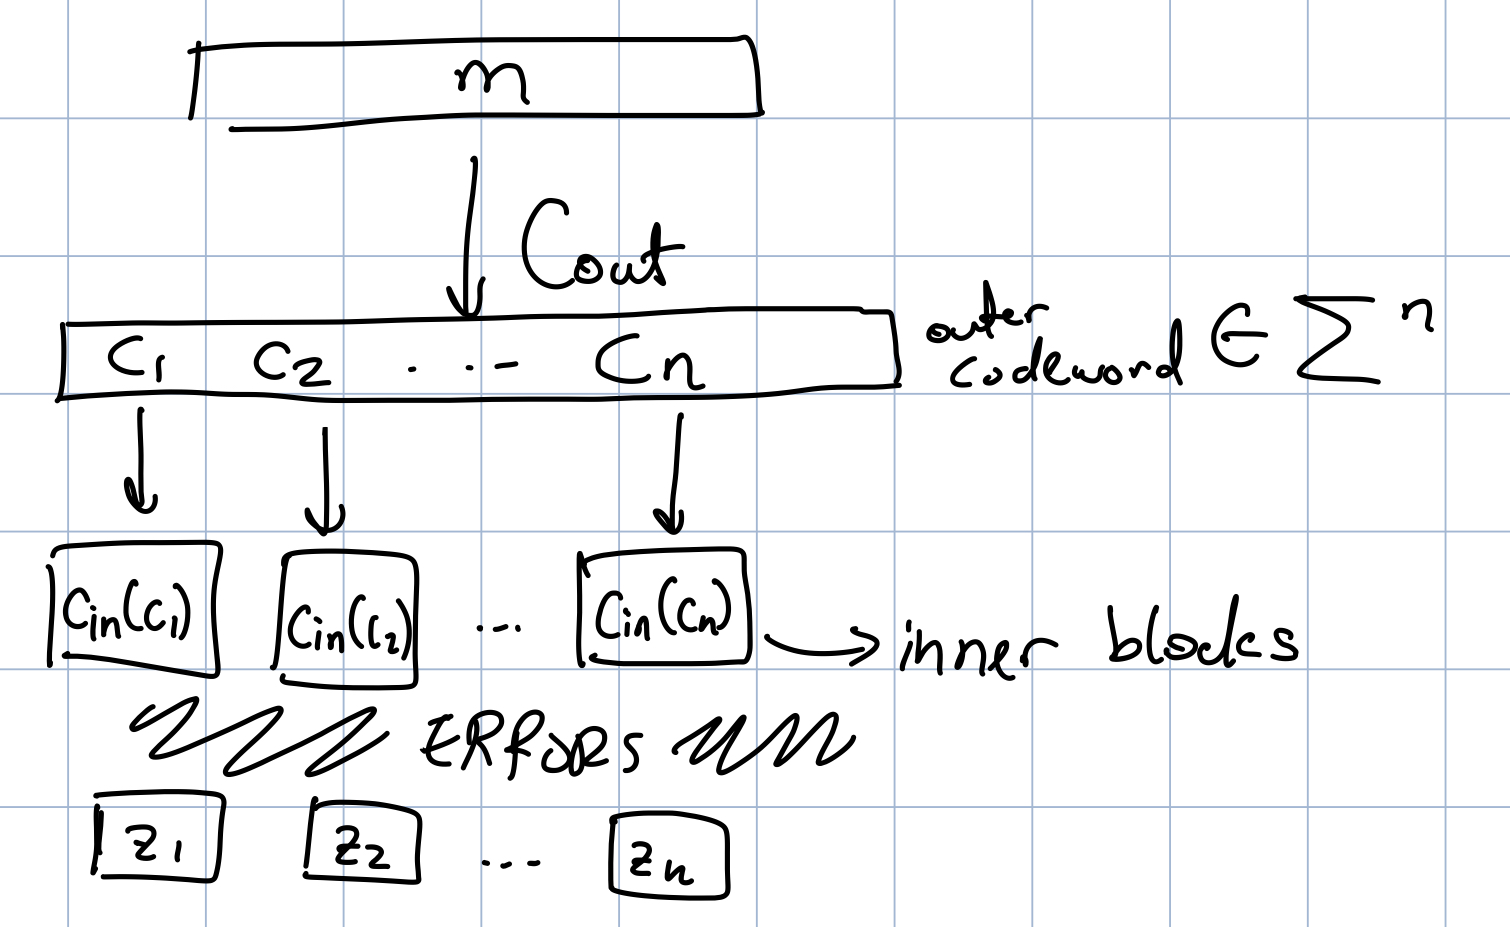 m
Cout
C1 C2 ... Cn
outer
codeword ∈ Σ^n
Cin(C1) Cin(C2) ... Cin(Cn)
inner blocks
ERRORS
z1 z2 ... zn